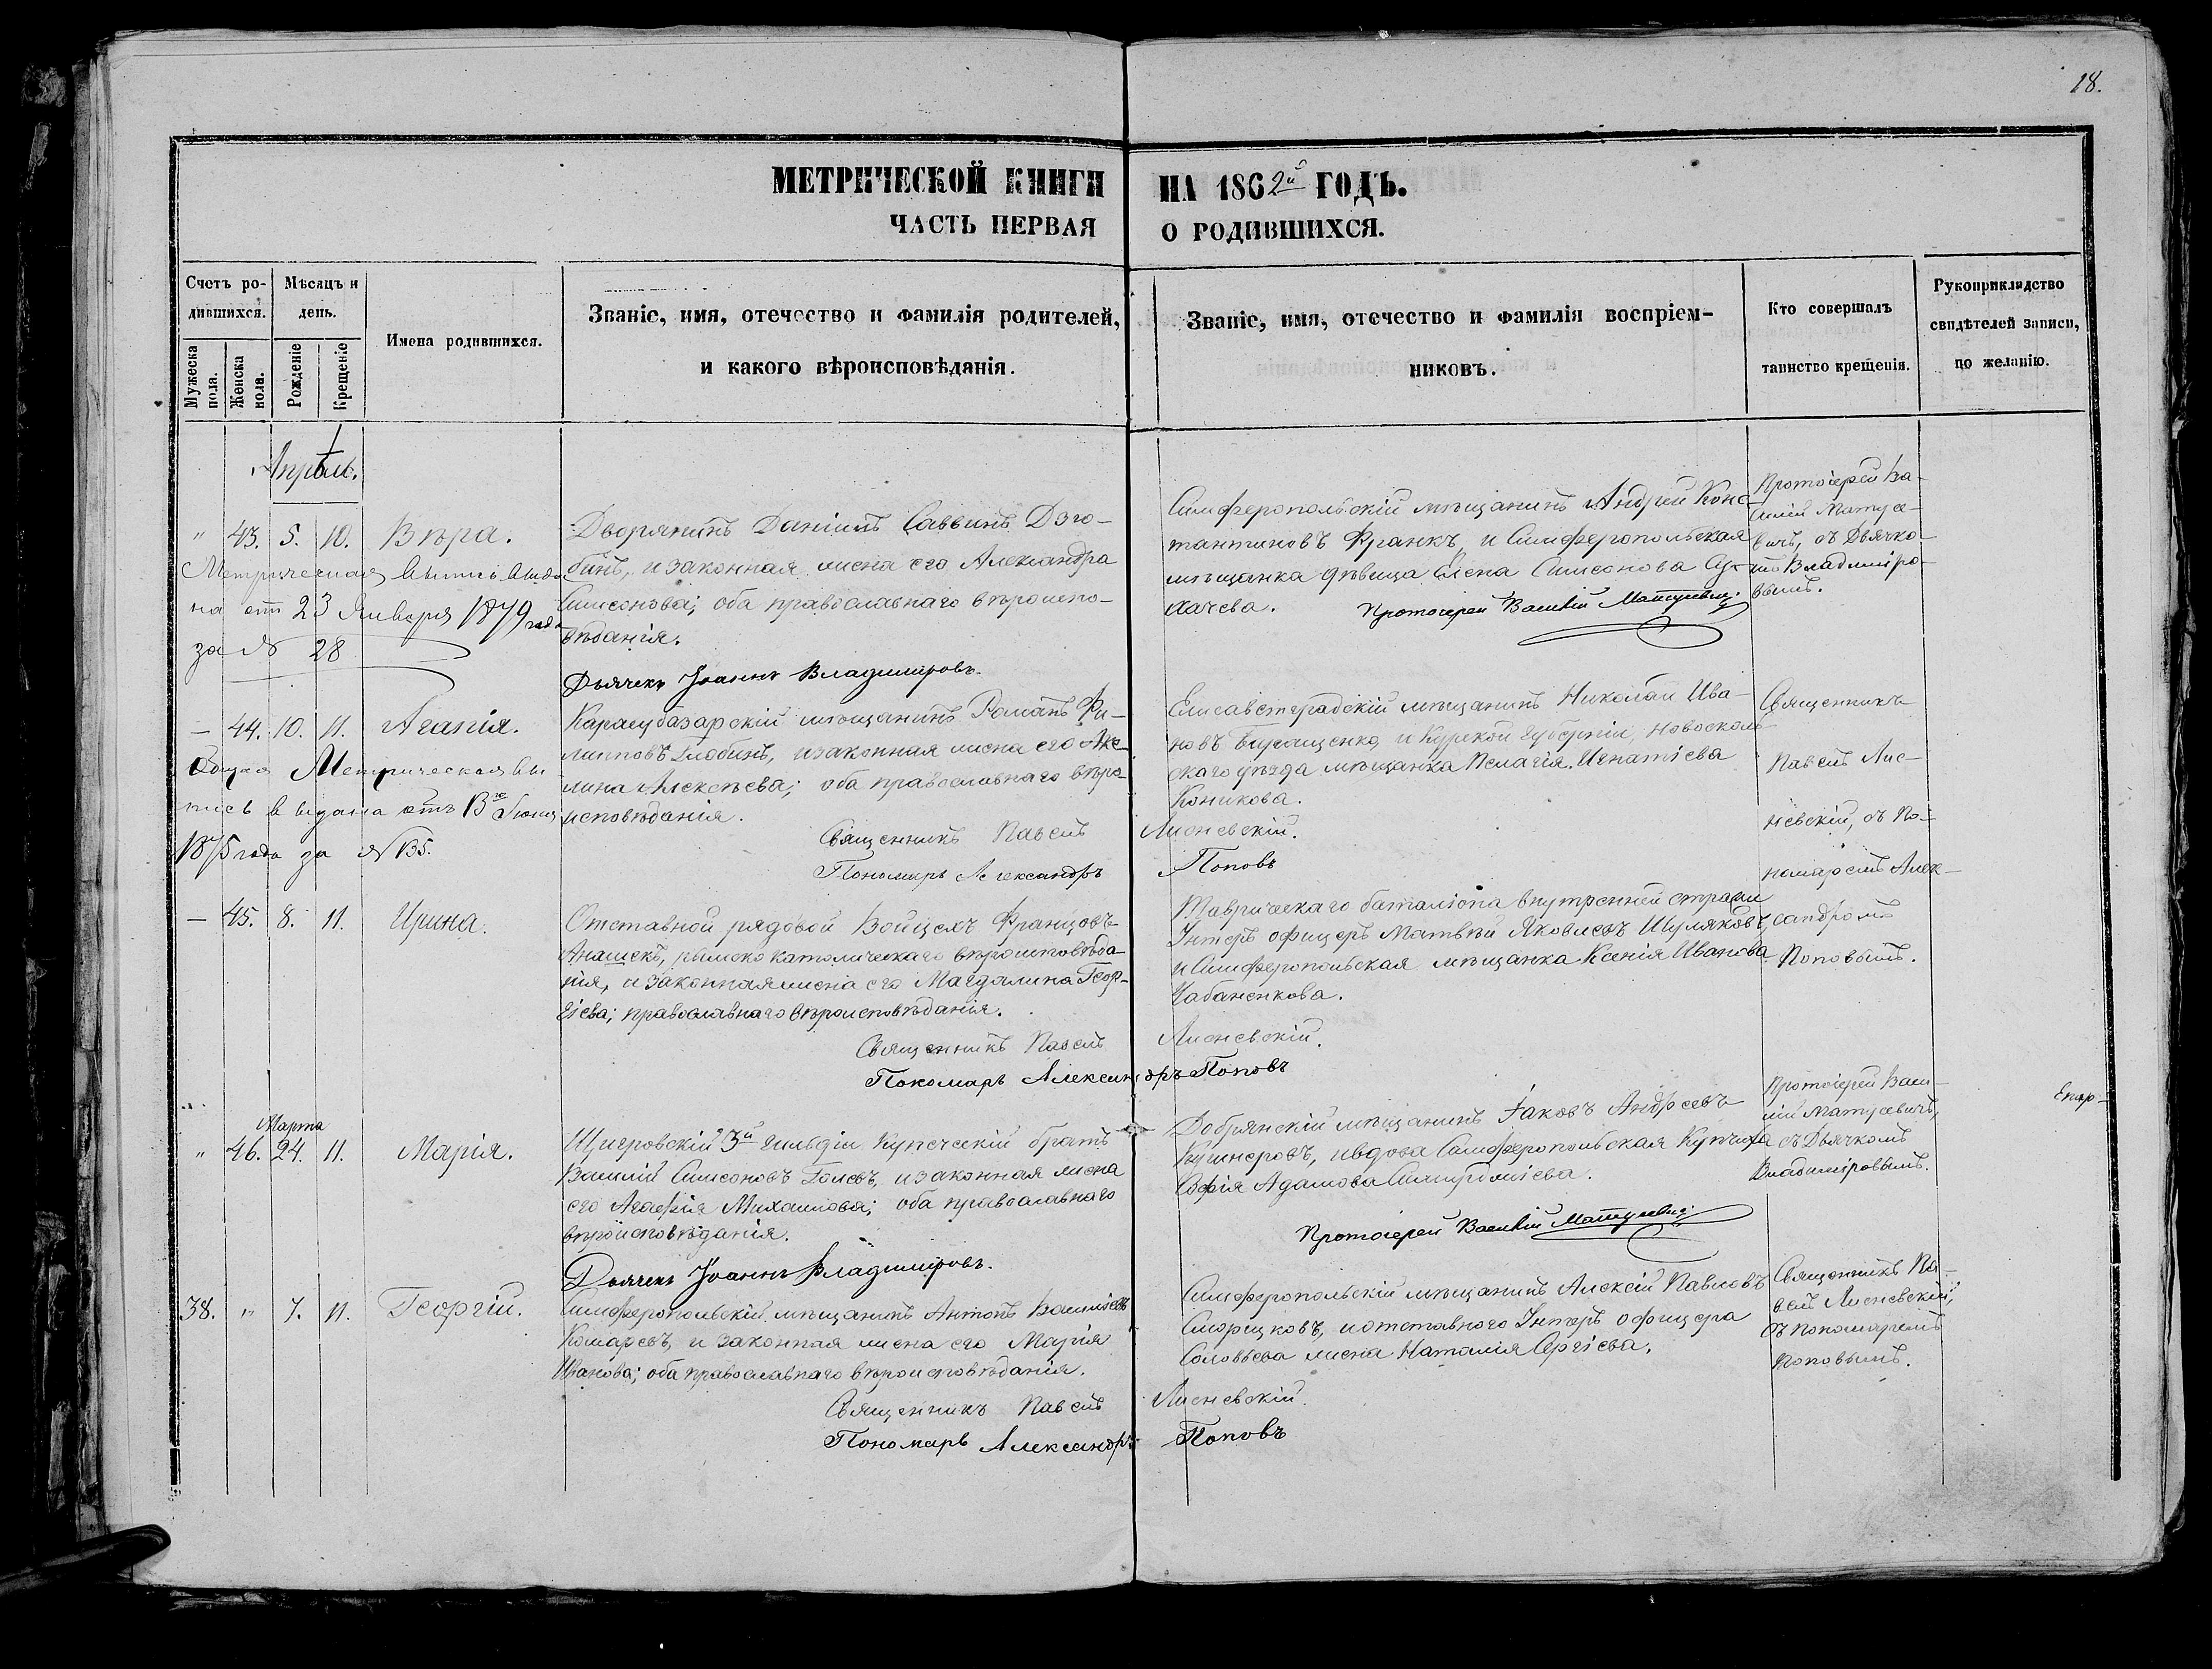 18.
МЕТРИЧЕСКОЙ КНИГИ НА 1862й ГОДЪ.
ЧАСТЬ ПЕРВАЯ О РОДИВШИХСЯ.
Счетъ родившихся.
Мужеска пола.
Женска пола.
Мѣсяцъ и день.
Рожденіе
Крещеніе
Имена родившихся.
Званіе, имя, отечество и фамилія родителей,
и какого вѣроисповѣданія.
Званіе, имя, отечество и фамилія воспріем-
никовъ.
Кто совершалъ
таинство крещенія.
Рукоприкладство
свидѣтелей записи,
по желанію.
Апрѣль.
" 43. 5. 10. Вѣра.
Метрическая выпись выда
на отъ 23 Января 1879 года
за № 28
Дворянинъ Даніилъ Саввинъ Дзю-
бинъ, и законная жена его Александра
Симеонова; оба православнаго вѣроиспо-
вѣданія.
Дьячекъ Іоаннъ Владиміровъ.
Симферопольскій мѣщанинъ Андрей Конс-
тантиновъ Франкъ, и Симферопольская
мѣщанка дѣвица Елена Симеонова Су-
хачева.
Протоіерей Василій Матусевичъ
Протоіерей Ва-
силій Матусе-
вичъ, съ Дьячко-
мъ Владиміро-
вымъ.
— 44. 10. 11. Агапія.
Метрическая вы
пись выдана отъ
1875 года за № 135.
Карасубазарскій мѣщанинъ Романъ Фи-
липповъ Глобинъ, и законная жена его Аке-
лина Алексѣева; оба православнаго вѣро-
исповѣданія.
Священникъ Павелъ Лисневскій.
Пономарь Александръ Поповъ
Елисаветградскій мѣщанинъ Николай Ива-
новъ и Курской Губерніи, Новосколь-
скаго уѣзда мѣщанка Пелагія Игнатіева
Коникова.
Священникъ
Павелъ Лис-
невскій, съ По-
номаремъ Алек-
сандромъ
Поповымъ.
— 45. 8. 11. Ирина.
Отставной рядовой Войцехъ Францовъ
Анашекъ, римско католическаго вѣроисповѣда-
нія, и законная жена его Магдалина Геор-
гіева; православнаго вѣроисповѣданія.
Священникъ Павелъ Лисневскій.
Пономарь Александръ Поповъ
Таврическаго баталіона внутренней стражи
Унтеръ офицеръ Матвѣй Яковлевъ Шуляковъ,
и Симферопольская мѣщанка Ксенія Иванова
Чабаненкова.
Марта
" 46. 24. 11. Марія.
Щигровскій 3й гильдіи Купеческій братъ
Василій Симеоновъ Голевъ, и законная жена
его Агафія Михаилова; оба православнаго
вѣроисповѣданія.
Дьячекъ Іоаннъ Владиміровъ.
Добрянскій мѣщанинъ Іаковъ Андреевъ
Кушнеровъ, и вдова Симферопольская Купчиха
Софія Адамова
Протоіерей Василій Матусевичъ
Протоіерей Васи-
лій Матусевичъ,
съ Дьячкомъ
Владиміровымъ.
38. " 7. 11. Георгій.
Симферопольскій мѣщанинъ Антонъ Василіевъ
Комаревъ, и законная жена его Марія
Иванова; оба православнаго вѣроисповѣданія.
Священникъ Павелъ Лисневскій.
Пономарь Александръ Поповъ
Симферопольскій мѣщанинъ Алексій Павловъ
Сморчковъ, и отставного Унтеръ офицера
Соловьева жена Наталія Сергіева.
Священникъ Па-
велъ Лисневскій,
съ Пономаремъ
Поповымъ.
Епар-